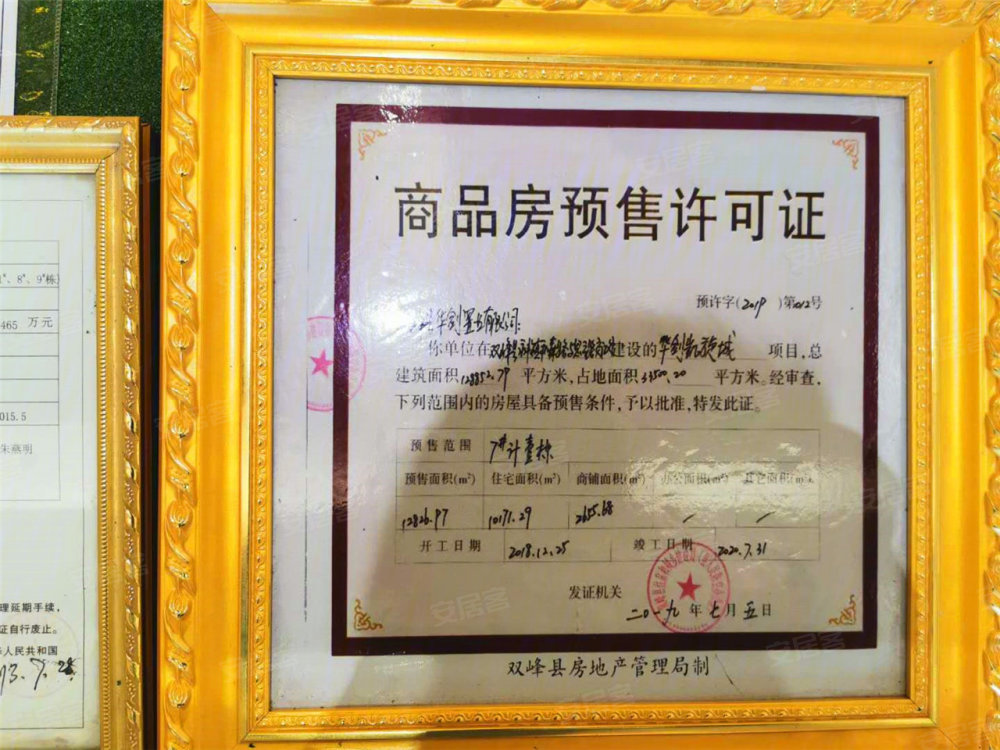 1#、8#、9#栋)
465 万元
015.5
朱燕明
理延期手续,
证自行废止。
人民共和国
商品房预售许可证
预许字(2019 )第012号
华创置业有限公司:
你单位在 建设的 项目,总
建筑面积128852.79 平方米,占地面积 平方米。经审查,
下列范围内的房屋具备预售条件,予以批准,特发此证。
预售范围 7#计壹栋
预售面积(m²) 住宅面积(m²) 商铺面积(m²) 办公面积(m²) 其它面积(m²)
12826.97 10171.29 2655.68 / /
开工日期 2018.12.25 竣工日期 2020.7.31
发证机关
二〇一九 年 七 月 五 日
双峰县房地产管理局制
安居客